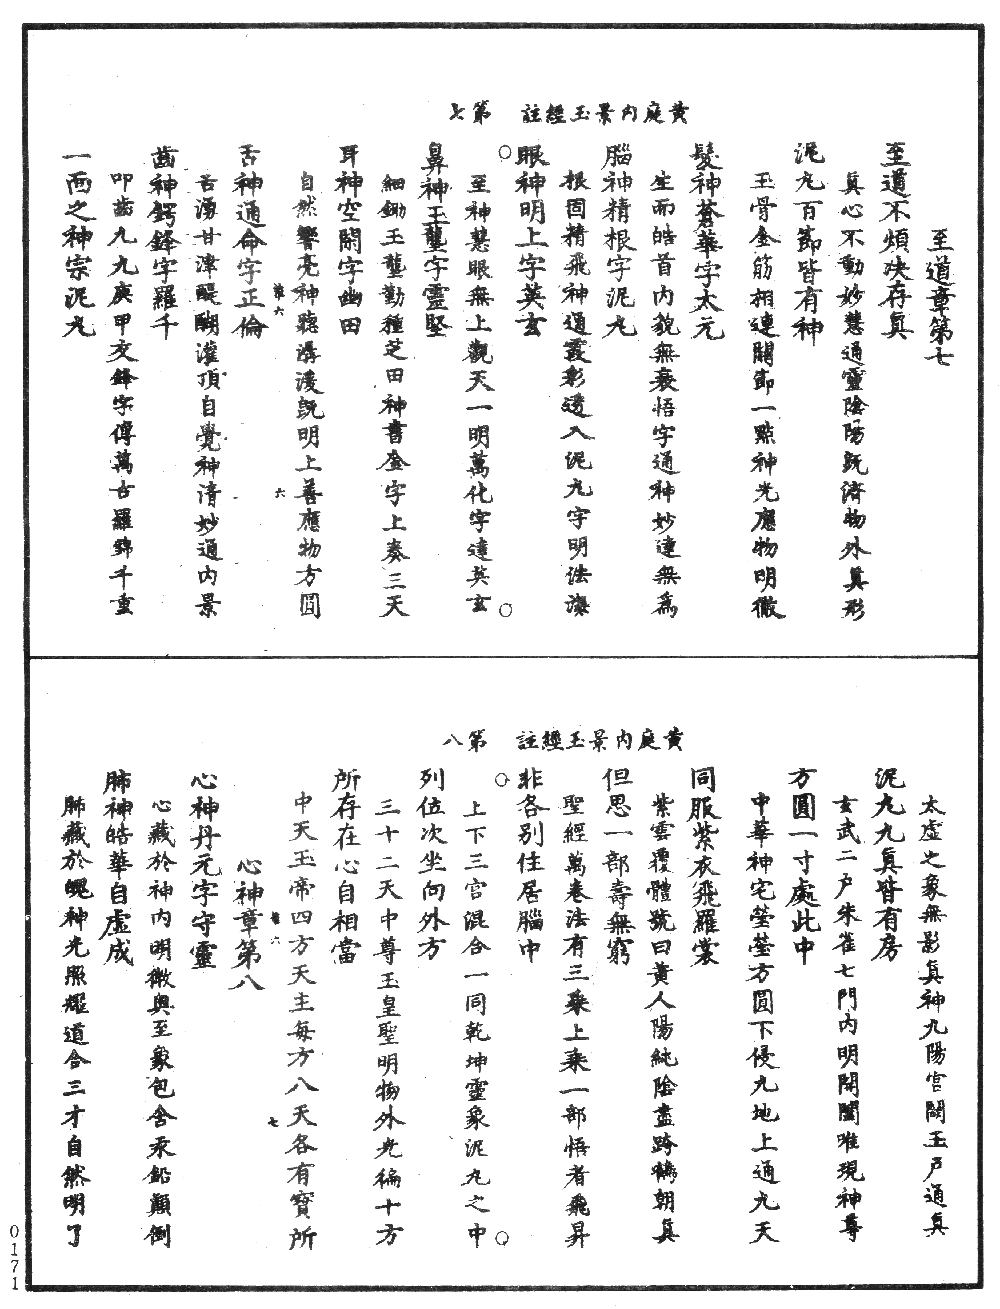 黃庭內景玉經註　第七
至道章第七
至道不煩決存真
真心不動妙慧通靈陰陽既濟物外真形
泥丸百節皆有神
玉骨金筋相連關節一點神光應物明徹
髮神蒼華字太元
生而皓首內貌無衰悟字通神妙達無為
腦神精根字泥丸
根固精飛神通霞彩透入泥丸字明法海
眼神明上字英玄
至神慧眼無上觀天一明萬化字達英玄
鼻神玉壟字靈堅
細鋤玉壟勤種芝田神書金字上奏三天
耳神空閑字幽田
自然響亮神聽潺湲既明上善應物方圓
六
舌神通命字正倫
舌湧甘津醍醐灌頂自覺神清妙通內景
齒神崿鋒字羅千
叩齒九九庚甲交鋒字傳萬古羅錦千重
一面之神宗泥丸
黃庭內景玉經註　第八
太虛之象無影真神九陽宮闕玉戶通真
泥丸九真皆有房
玄武二戶朱雀七門內明開闔唯現神尊
方圓一寸處此中
中華神宅瑩瑩方圓下侵九地上通九天
同服紫衣飛羅裳
紫雲覆體號曰黃人陽純陰盡跨鶴朝真
但思一部壽無窮
聖經萬卷法有三乘上乘一部悟者飛昇
非各別住居腦中
上下三宮混合一同乾坤靈象泥丸之中
列位次坐向外方
三十二天中尊玉皇聖明物外光徧十方
所存在心自相當
中天玉帝四方天主每方八天各有寶所
七
心神章第八
心神丹元字守靈
心藏於神內明徹輿至象包含汞鉛顛倒
肺神皓華自虛成
肺藏於魄神光照耀道合三才自然明了
0171